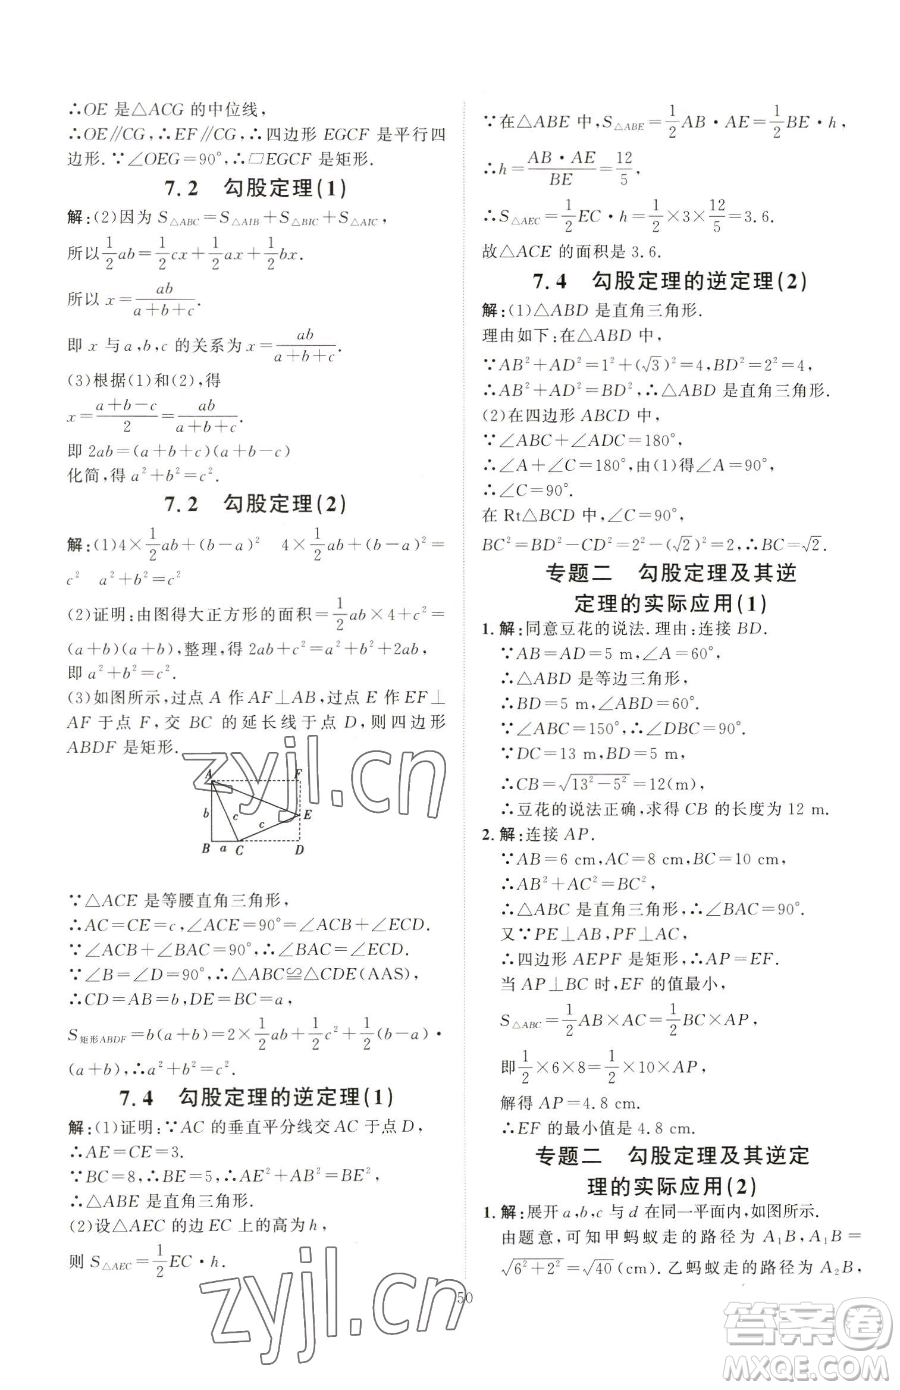 ∴OE 是△ACG 的中位线,
∴OE∥CG,∴EF∥CG,∴四边形 EGCF 是平行四
边形.∵∠OEG=90°,∴□EGCF 是矩形.
7.2 勾股定理(1)
解:(2)因为 S△ABC=S△AIB+S△BIC+S△AIC,
所以 1/2 ab=1/2 cx+1/2 ax+1/2 bx.
所以 x=ab/(a+b+c).
即 x 与 a,b,c 的关系为 x=ab/(a+b+c).
(3)根据(1)和(2),得
x=(a+b-c)/2=ab/(a+b+c).
即 2ab=(a+b+c)(a+b-c)
化简,得 a²+b²=c².
7.2 勾股定理(2)
解:(1)4×1/2 ab+(b-a)² 4×1/2 ab+(b-a)²=
c² a²+b²=c²
(2)证明:由图得大正方形的面积=1/2 ab×4+c²=
(a+b)(a+b),整理,得 2ab+c²=a²+b²+2ab,
即 a²+b²=c².
(3)如图所示,过点 A 作 AF⊥AB,过点 E 作 EF⊥
AF 于点 F,交 BC 的延长线于点 D,则四边形
ABDF 是矩形.
A F
b c c E
B a C D
∵△ACE 是等腰直角三角形,
∴AC=CE=c,∠ACE=90°=∠ACB+∠ECD.
∵∠ACB+∠BAC=90°,∴∠BAC=∠ECD.
∵∠B=∠D=90°,∴△ABC≌△CDE(AAS),
∴CD=AB=b,DE=BC=a,
S矩形ABDF=b(a+b)=2×1/2 ab+1/2 c²+1/2(b+a)·
(b-a),∴a²+b²=c².
7.4 勾股定理的逆定理(1)
解:(1)证明:∵AC 的垂直平分线交 AC 于点 D,
∴AE=CE=3.
∵BC=8,∴BE=5.∴AE²+AB²=BE²,
∴△ABE 是直角三角形.
(2)设△AEC 的边 EC 上的高为 h,
则 S△AEC=1/2 EC·h.
∵在△ABE 中,S△ABE=1/2 AB·AE=1/2 BE·h,
∴h=AB·AE/BE=12/5,
∴S△AEC=1/2 EC·h=1/2×3×12/5=3.6.
故△ACE 的面积是 3.6.
7.4 勾股定理的逆定理(2)
解:(1)△ABD 是直角三角形.
理由如下:在△ABD 中,
∵AB²+AD²=1²+(√3)²=4,BD²=2²=4,
∴AB²+AD²=BD²,∴△ABD 是直角三角形.
(2)在四边形 ABCD 中,
∵∠ABC+∠ADC=180°,
∴∠A+∠C=180°,由(1)得∠A=90°,
∴∠C=90°.
在 Rt△BCD 中,∠C=90°,
BC²=BD²-CD²=2²-(√2)²=2,∴BC=√2.
专题二 勾股定理及其逆
定理的实际应用(1)
1. 解:同意豆花的说法.理由:连接 BD.
∵AB=AD=5 m,∠A=60°,
∴△ABD 是等边三角形.
∴BD=5 m,∠ABD=60°.
∵∠ABC=150°,∴∠DBC=90°.
∵DC=13 m,BD=5 m,
∴CB=√(13²-5²)=12(m).
∴豆花的说法正确,求得 CB 的长度为 12 m.
2. 解:连接 AP.
∵AB=6 cm,AC=8 cm,BC=10 cm,
∴AB²+AC²=BC².
∴△ABC 是直角三角形,∴∠BAC=90°.
又∵PE⊥AB,PF⊥AC,
∴四边形 AEPF 是矩形,∴AP=EF.
当 AP⊥BC 时,EF 的值最小,
S△ABC=1/2 AB×AC=1/2 BC×AP,
即1/2×6×8=1/2×10×AP.
解得 AP=4.8 cm.
∴EF 的最小值是 4.8 cm.
专题二 勾股定理及其逆定
理的实际应用(2)
1. 解:展开 a,b,c 与 d 在同一平面内,如图所示.
由题意,可知甲蚂蚁走的路径为 A₁B,A₁B=
√(6²+2²)=√40(cm).乙蚂蚁走的路径为 A₂B,
50
zyjl.cn
zyjl.cn
答案圈
MXQE.COM